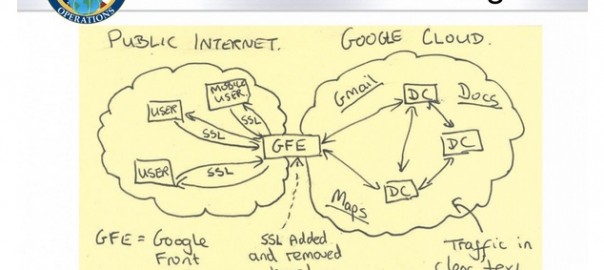 OPERATIONS
PUBLIC INTERNET.
GOOGLE CLOUD.
MOBILE
USER.
USER
SSL
SSL
USER
SSL
GFE
Gmail
DC
Docs
DC
DC
Maps
GFE = Google
Front
SSL Added
and removed
Traffic in